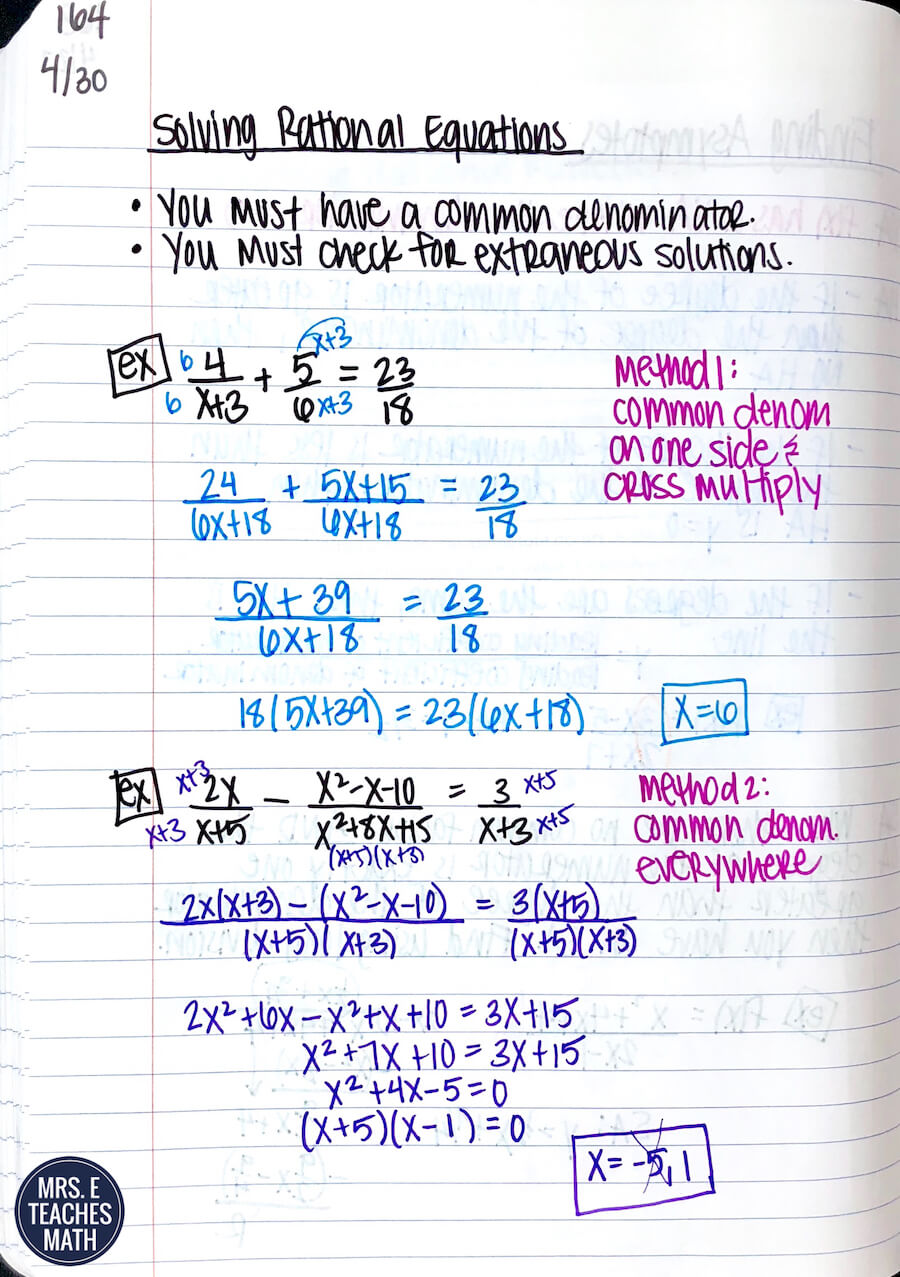 164
4/30
Solving Rational Equations
• You must have a common denominator.
• You must check for extraneous solutions.
ex 6 4/x+3 6 + 5 x+3/6 x+3 = 23/18
Method 1:
common denom
on one side &
cross multiply
24/6x+18 + 5x+15/6x+18 = 23/18
5x+39/6x+18 = 23/18
18(5x+39) = 23(6x+18)
x=6
ex x+3 2x/x+3 x+5 − x²-x-10/x²+8x+15 = 3 x+5/x+3 x+5
(x+5)(x+3)
Method 2:
common denom.
everywhere
2x(x+3) − (x²-x-10)/(x+5)(x+3) = 3(x+5)/(x+5)(x+3)
2x²+6x−x²+x+10 = 3x+15
x²+7x+10 = 3x+15
x²+4x-5=0
(x+5)(x-1)=0
x= -5, 1
MRS. E
TEACHES
MATH